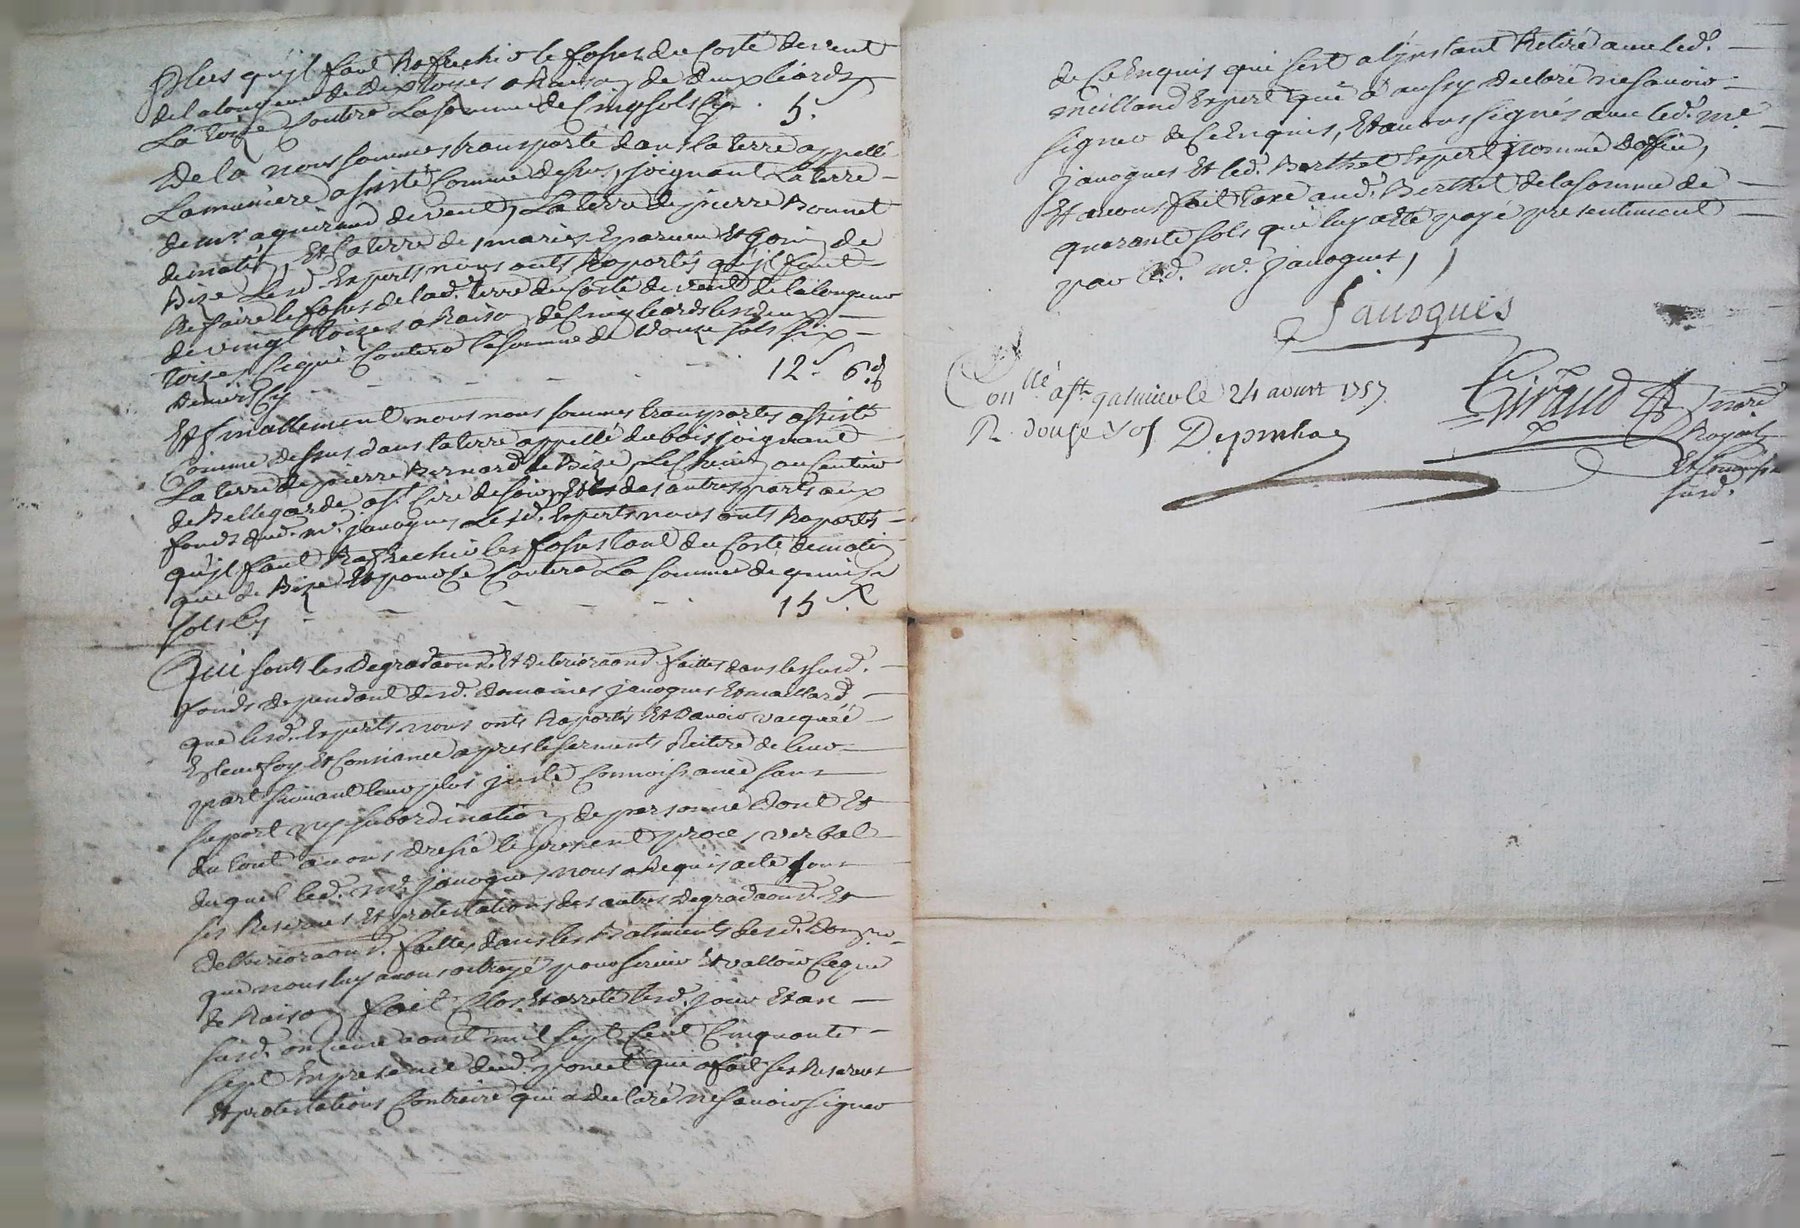 Plus qu'jl faut Rafrechir le fossés du Costé de vent
de la longueur de dix toises a Raison de deux liards
La toize Coutera La somme de Cinq sols Cy . 5.s
De la nous sommes transporté dans la terre appellé
La muniere assisté Comme dessus, joignant La terre
de mr aguiraud de vent, La terre de pierre Bonnet
de matin, Et la terre de maries Eparuier Et soir de
Bize Lesd. Experts nous onts Raportés qu'jl faut
Refaire le fossés de lad. terre du Costé de vent de la longueur
de vingt toizes a Raison de Cinq liards les deux
toizes, Ce qui Coutera la somme de douze sols six
deniers Cy - - - - 12.s 6.d
Et finallement nous nous sommes transportés assisté
Comme dessus dans la terre appellé du bois joignant
La terre de pierre Bernard de Bize, Le Chemin
de Bellegarde a st Cire de soir, Et des autres parts aux
fonds dud. me. jauoques Lesd. Experts nous onts Raportés
qu'jl faut Rafrechir les fossés tant du Costé de matin
que de Bize Et pour ce Coutera La somme de quinze
sols Cy - - - - 15.s
Qui sonts les degradaons Et deterioraons faittes dans les susd.
fonds dependant desd. domaines jauoques Et maillard
que lesd. Experts nous onts Raportés Et d'auoir vacquéé
En leur foy Et Consiance apres le serments Reiteré de leur
part suiuant leur plus juste Connoissance sans
suport ny subordination de personne dont Et
du tout auons dressé le present proces verbal
duquel led. me jauoques nous a Requis acte sous
ses Reserues Et protestations des autres degradaons Et
deterioraons faittes dans les Batiments desd. Domne.
que nous luy auons octroyé pour seruir Et valloir Ce que
de Raison fait Clos Et arreté lesd. jour Et an
susd. onzieme aoust mil sept Cent Cinquante
sept En presence dud. poncet qui a fait ses Reserues
Et protestations Contraire qui a declaré ne sauoir signer
de Ce Enquis qui s'est a l'jnstant Retiré auec led.
meilland Expert que a aussy declaré ne sauoir
signer de Ce Enquis, Et auons signés auec led. me
jauoques Et led. Berthet Expert nommé d'office,
Et auons fait taxe aud. Berthet de la somme de
quarante sols que luy a eté payé presentement
par led. me. jauoques,
Jauoques
Conllé a st galmier le 24 aoust 1757.
R. douze sos Depinhac
Giraud nore
Royal
Et Commissre
susd.